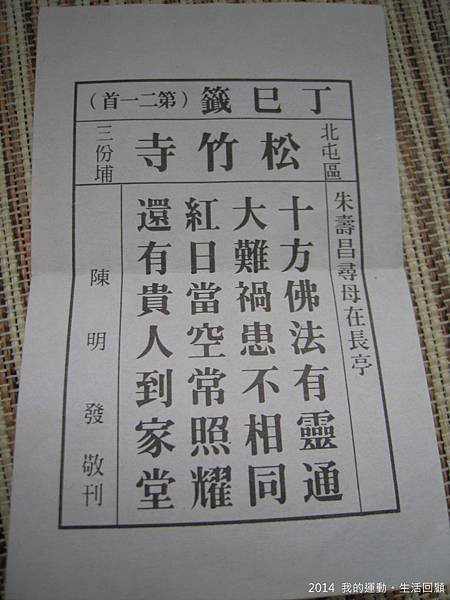 丁巳籤(第二一首)
北屯區
松竹寺
三份埔
朱壽昌尋母在長亭
十方佛法有靈通
大難禍患不相同
紅日當空常照耀
還有貴人到家堂
陳明發敬刊
2014 我的運動・生活回顧